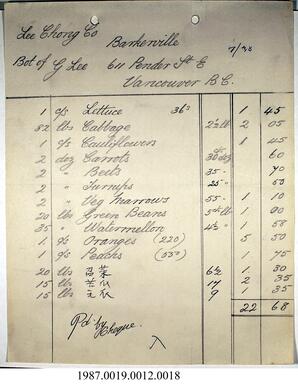 Lee Chong Co Barkerville 7/30
Bot of G Lee 611 Pender St E
Vancouver B.C.
1 c/s Lettuce 36s 1 45
82 lbs Cabbage 2½ lb 2 05
1 c/s Cauliflowers 1 45
2 doz Carrots 30 doz 60
2 " Beets 35 - 70
2 " Turnips 25 " 50
2 " Veg Marrows 55 - 1 10
20 lbs Green Beans lb 90
35 " Watermellon 4½ " 1 58
1 c/s Oranges (220) 5 50
1 c/s Peachs 1 75
20 lbs 6½ 1 30
15 lbs 苦瓜 17 2 35
15 lbs 瓜 9 1 35
22 68
Pd. by Cheque.
1987.0019.0012.0018